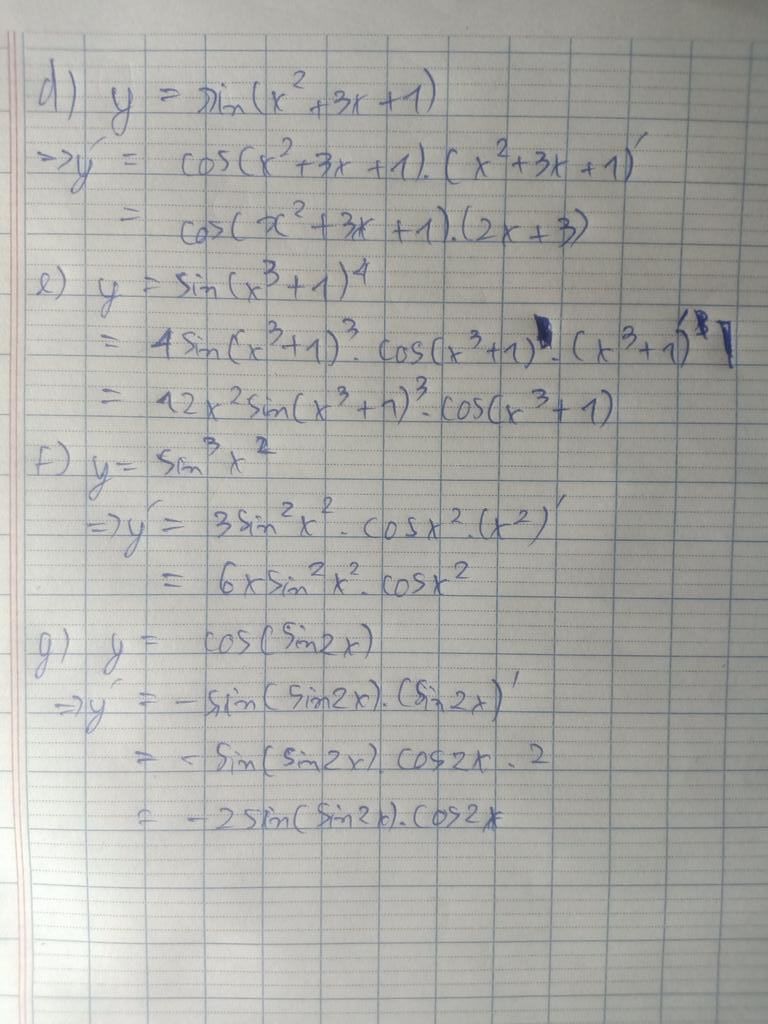 d) y = sin(x² + 3x + 1)
=> y' = cos(x² + 3x + 1) . (x² + 3x + 1)'
= cos(x² + 3x + 1).(2x + 3)
e) y = sin(x³ + 1)⁴
= 4 sin(x³ + 1)³ . cos(x³ + 1) . (x³ + 1)'
= 12x² sin(x³ + 1)³ . cos(x³ + 1)
f) y = sin³ x²
=> y' = 3 sin² x² . cos x² . (x²)'
= 6x sin² x² . cos x²
g) y = cos(sin2x)
=> y' = - sin(sin2x) . (sin2x)'
= - sin(sin2x) . cos2x . 2
= - 2 sin(sin2x) . cos2x